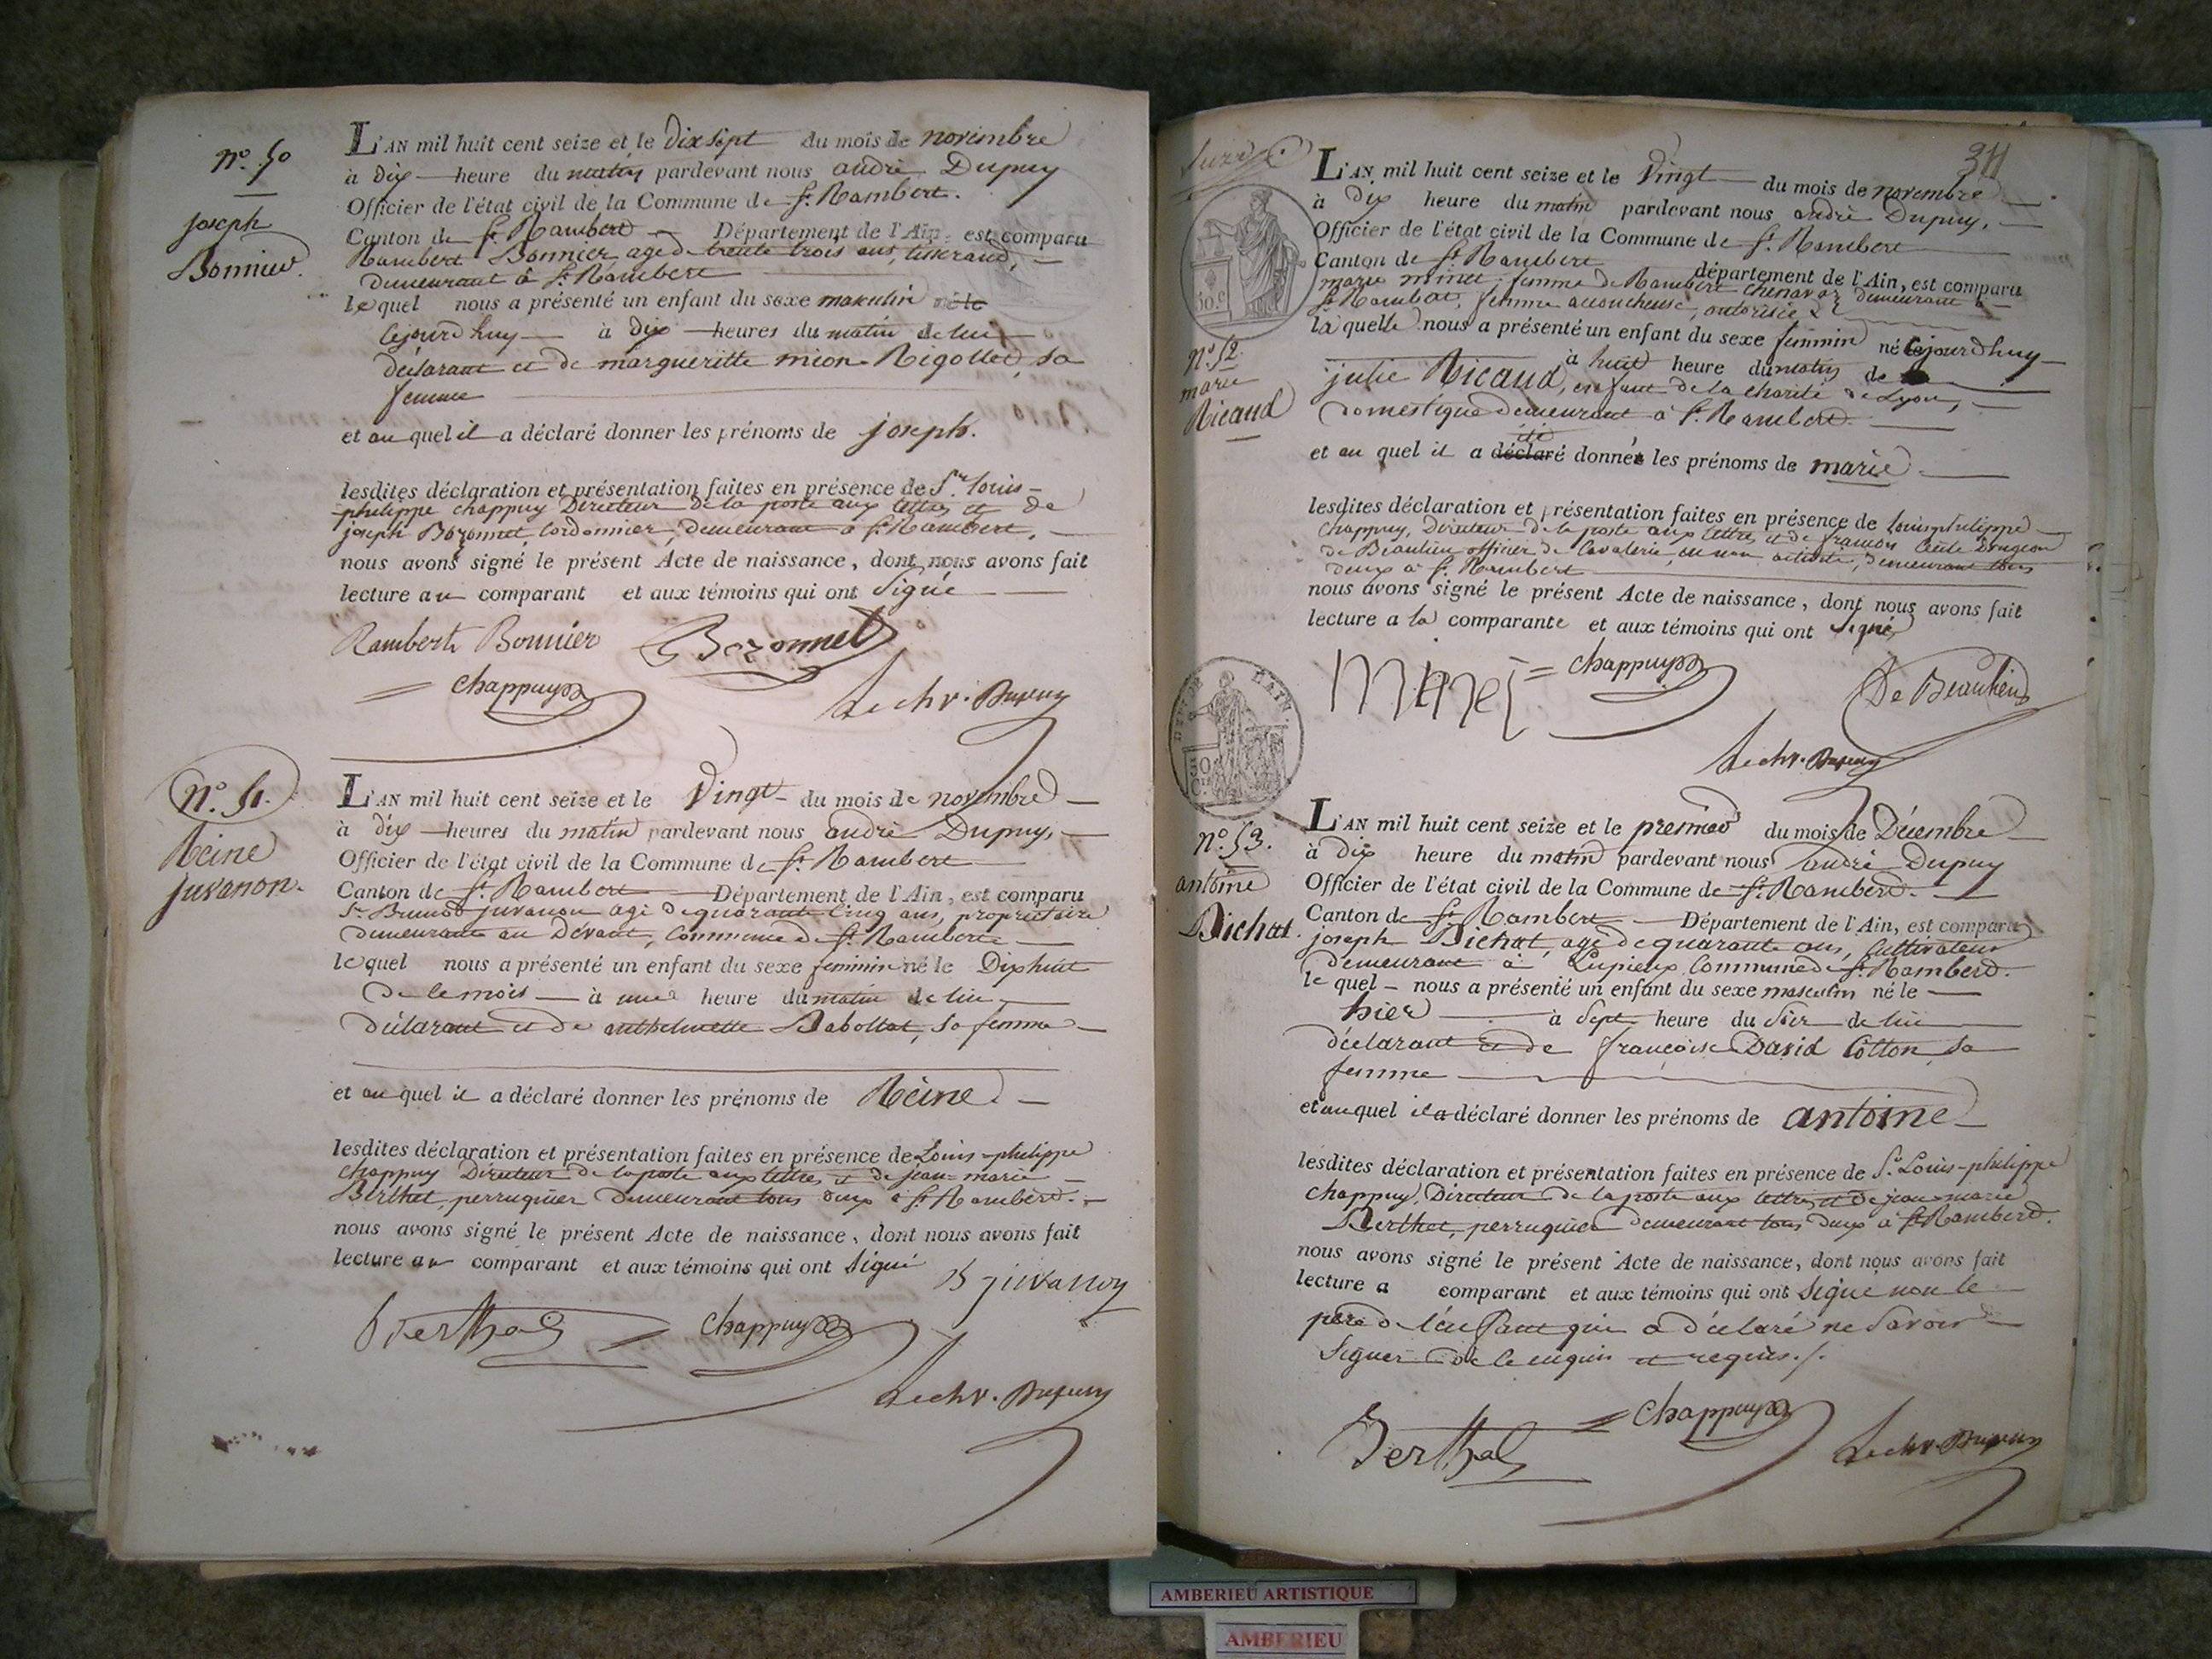 n.º 50
joseph
Bonnier.
L'AN mil huit cent seize et le dix sept du mois de novembre
à dix heure du matin pardevant nous andré Dupuy
Officier de l'état civil de la Commune de St. Rambert.
Canton de St. Rambert Département de l'Ain, est comparu
Rambert Bonnier agé de trente trois ans, tisserand,
demeurant à St. Rambert
lequel nous a présenté un enfant du sexe masculin né le
cejourdhuy à dix heures du matin de lui
déclarant et de margueritte mion-Rigollet, sa
femme
et au quel il a déclaré donner les prénoms de joseph.
lesdites déclaration et présentation faites en présence de Sr. louis-
philippe chappuy Directeur de la poste aux lettres et de
joseph Bozonnet, Cordonnier, demeurant à St. Rambert,
nous avons signé le présent Acte de naissance, dont nous avons fait
lecture au comparant et aux témoins qui ont Signé
Rambert Bonnier Bozonnet
chappuy
Le chr. Dupuy
N.º 51.
Reine
juvanon.
L'AN mil huit cent seize et le Vingt du mois de novembre
à dix heures du matin pardevant nous andré Dupuy,
Officier de l'état civil de la Commune de St. Rambert
Canton de St. Rambert Département de l'Ain, est comparu
Sr. Bruno juvanon agé de quarante cinq ans, propriétaire
demeurant au Dévant, Commune de St. Rambert
lequel nous a présenté un enfant du sexe feminin né le Dix huit
de ce mois à une heure du matin de lui
déclarant et de anthelmette Babollat, sa femme
et au quel il a déclaré donner les prénoms de Reine
lesdites déclaration et présentation faites en présence de Louis-philippe
Chappuy Directeur de la poste aux lettres et de jean-marie
Berthet, perruquier demeurant tous deux à St. Rambert.
nous avons signé le présent Acte de naissance, dont nous avons fait
lecture au comparant et aux témoins qui ont Signé
B juvanon
Berthet chappuy
Le chr. Dupuy
34
N.º 52.
marie
Ricaud
L'AN mil huit cent seize et le Vingt du mois de novembre
à dix heure du matin pardevant nous andré Dupuy,
Officier de l'état civil de la Commune de St. Rambert
Canton de St. Rambert département de l'Ain, est comparu
marie minet, femme de Rambert chenavaz demeurant à
St. Rambert, femme accoucheuse, autorisée
la quelle nous a présenté un enfant du sexe feminin né cejourdhuy
à huit heure du matin de
julie Ricaud, enfant de la charité de Lyon,
domestique demeurant à St. Rambert.
été
et au quel il a déclaré donnés les prénoms de marie
lesdites déclaration et présentation faites en présence de louis philippe
Chappuy, Directeur de la poste aux lettres et de françois
de Beaulieu officier de Cavalerie, en non activité, demeurant tous
deux à St. Rambert
nous avons signé le présent Acte de naissance, dont nous avons fait
lecture a la comparante et aux témoins qui ont Signé
Minet chappuy
De Beaulieu
Le chr. Dupuy
DIVISION L'AIN.
50
Cs.
n.º 53.
antoine
Bichat.
L'AN mil huit cent seize et le premier du mois de Décembre
à dix heure du matin pardevant nous andré Dupuy
Officier de l'état civil de la Commune de St. Rambert.
Canton de St. Rambert Département de l'Ain, est comparu
joseph Bichat, agé de quarante ans, Cultivateur
demeurant à Lupieux, Commune de St. Rambert.
le quel nous a présenté un enfant du sexe masculin né le
hier à Sept heure du Soir de lui
déclarant et de françoise David Cotton, sa
femme
et au quel il a déclaré donner les prénoms de antoine
lesdites déclaration et présentation faites en présence de Sr. Louis-philippe
chappuy, Directeur de la poste aux lettres, et de jean-marie
Berthet, perruquier demeurant tous deux à St. Rambert.
nous avons signé le présent Acte de naissance, dont nous avons fait
lecture a comparant et aux témoins qui ont Signé non le
père de l'enfant qui a déclaré ne Savoir
Signer de ce enquis et requis./.
Berthet chappuy
Le chr. Dupuy
AMBERIEU ARTISTIQUE
AMBERIEU